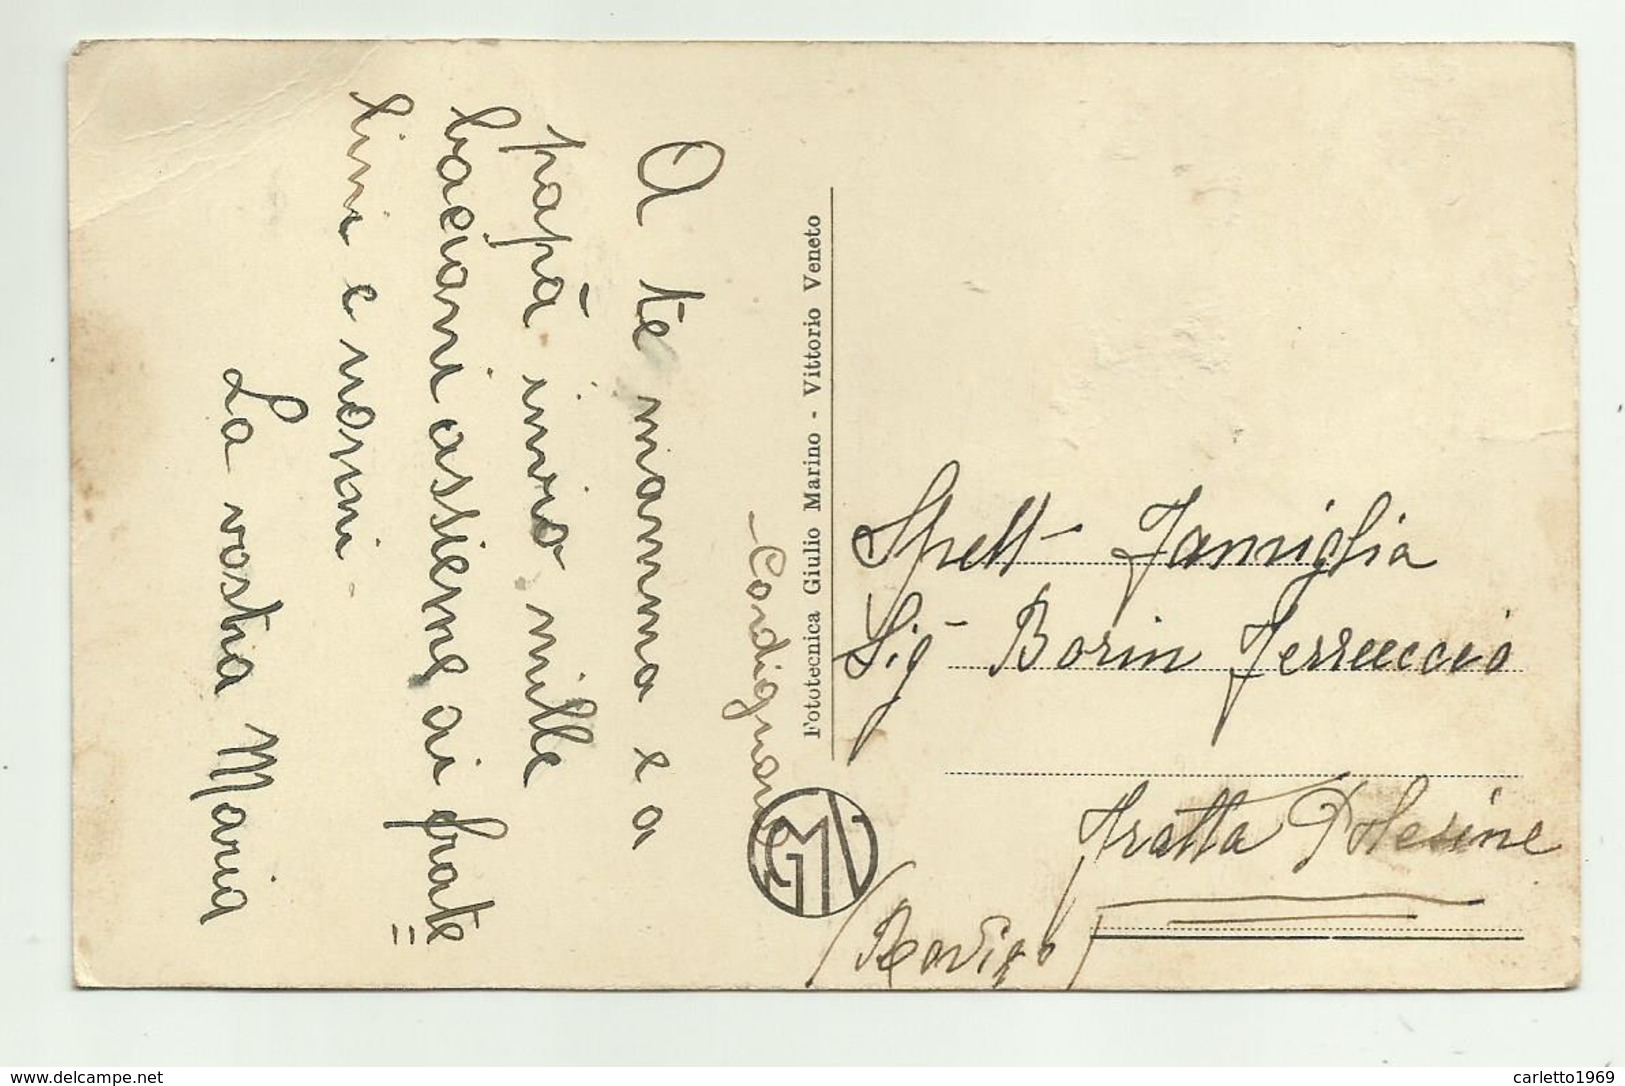 A te mamma e a
papà invio mille
bacioni assieme ai frate
lini e nonni.
La vostra Maria
- Cordignano
Fototecnica Giulio Marino - Vittorio Veneto
GMV
Spett- Famiglia
Sig- Borin Ferruccio
Fratta Polesine
(Rovigo)
www.delcampe.net
carletto1969